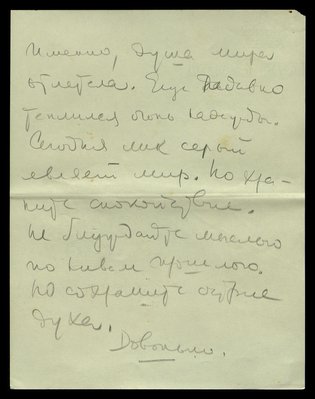 Именно, душа мира
отлетела. Еще недавно
теплился огонь надежды.
Сегодня лик серый
являет мир. Но хра-
ните спокойствие.
Не блуждайте мыслью
по нивам прошлого.
Но сохраните острие
духа.
Довольно.